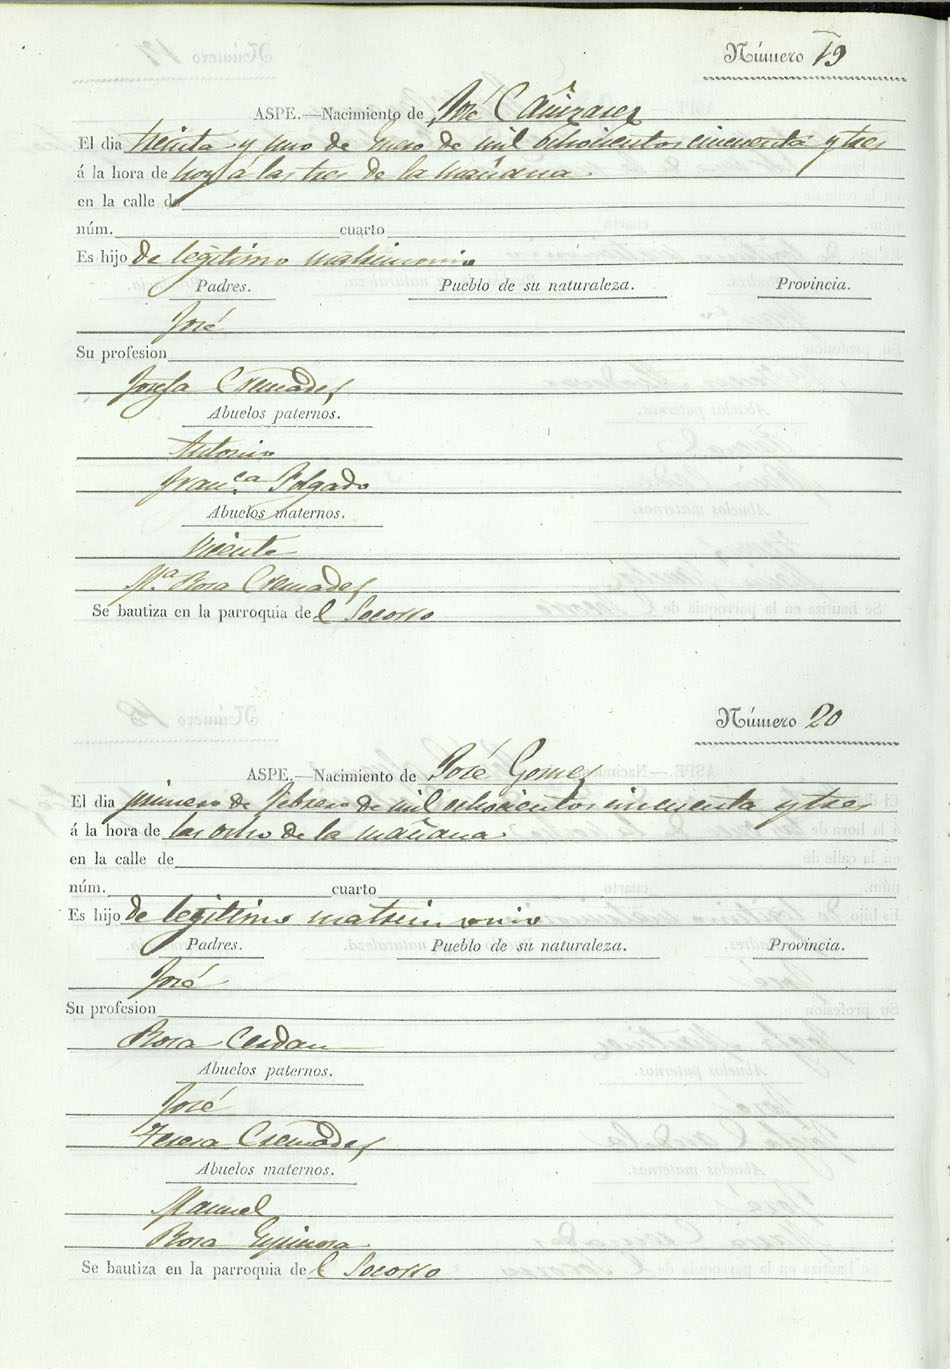 Número 19
ASPE.—Nacimiento de José Cañizares
El dia treinta y uno de Enero de mil ochocientos cincuenta y tres
á la hora de hoy á las tres de la mañana
en la calle de
núm. cuarto
Es hijo de legitimo matrimonio
Padres. Pueblo de su naturaleza. Provincia.
José
Su profesion
Josefa Cremades
Abuelos paternos.
Antonio
Fran.ca Folgado
Abuelos maternos.
Vicente
M.a Rosa Cremades
Se bautiza en la parroquia del Socorro
Número 20
ASPE.—Nacimiento de José Gomez
El dia primero de Febrero de mil ochocientos cincuenta y tres
á la hora de las ocho de la mañana
en la calle de
núm. cuarto
Es hijo de legitimo matrimonio
Padres. Pueblo de su naturaleza. Provincia.
José
Su profesion
Rosa Cerdan
Abuelos paternos.
José
Teresa Cremades
Abuelos maternos.
Manuel
Rosa Espinosa
Se bautiza en la parroquia de l Socorro